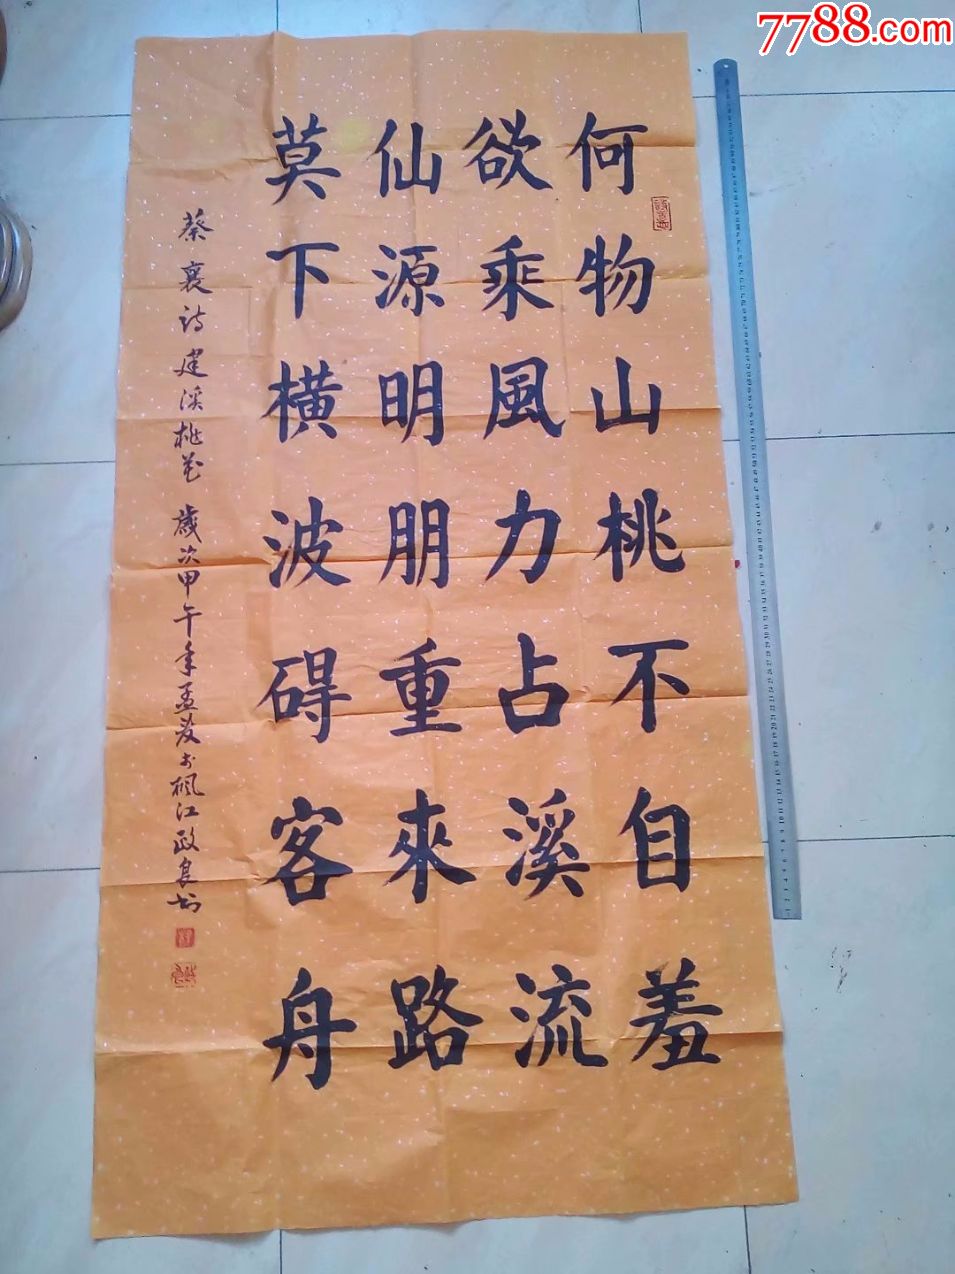 何物山桃不自羞
欲乘風力占溪流
仙源明朋重來路
莫下橫波碍客舟
蔡襄诗建溪桃花 歲次甲午年孟夏於楓江政良书
7788.com